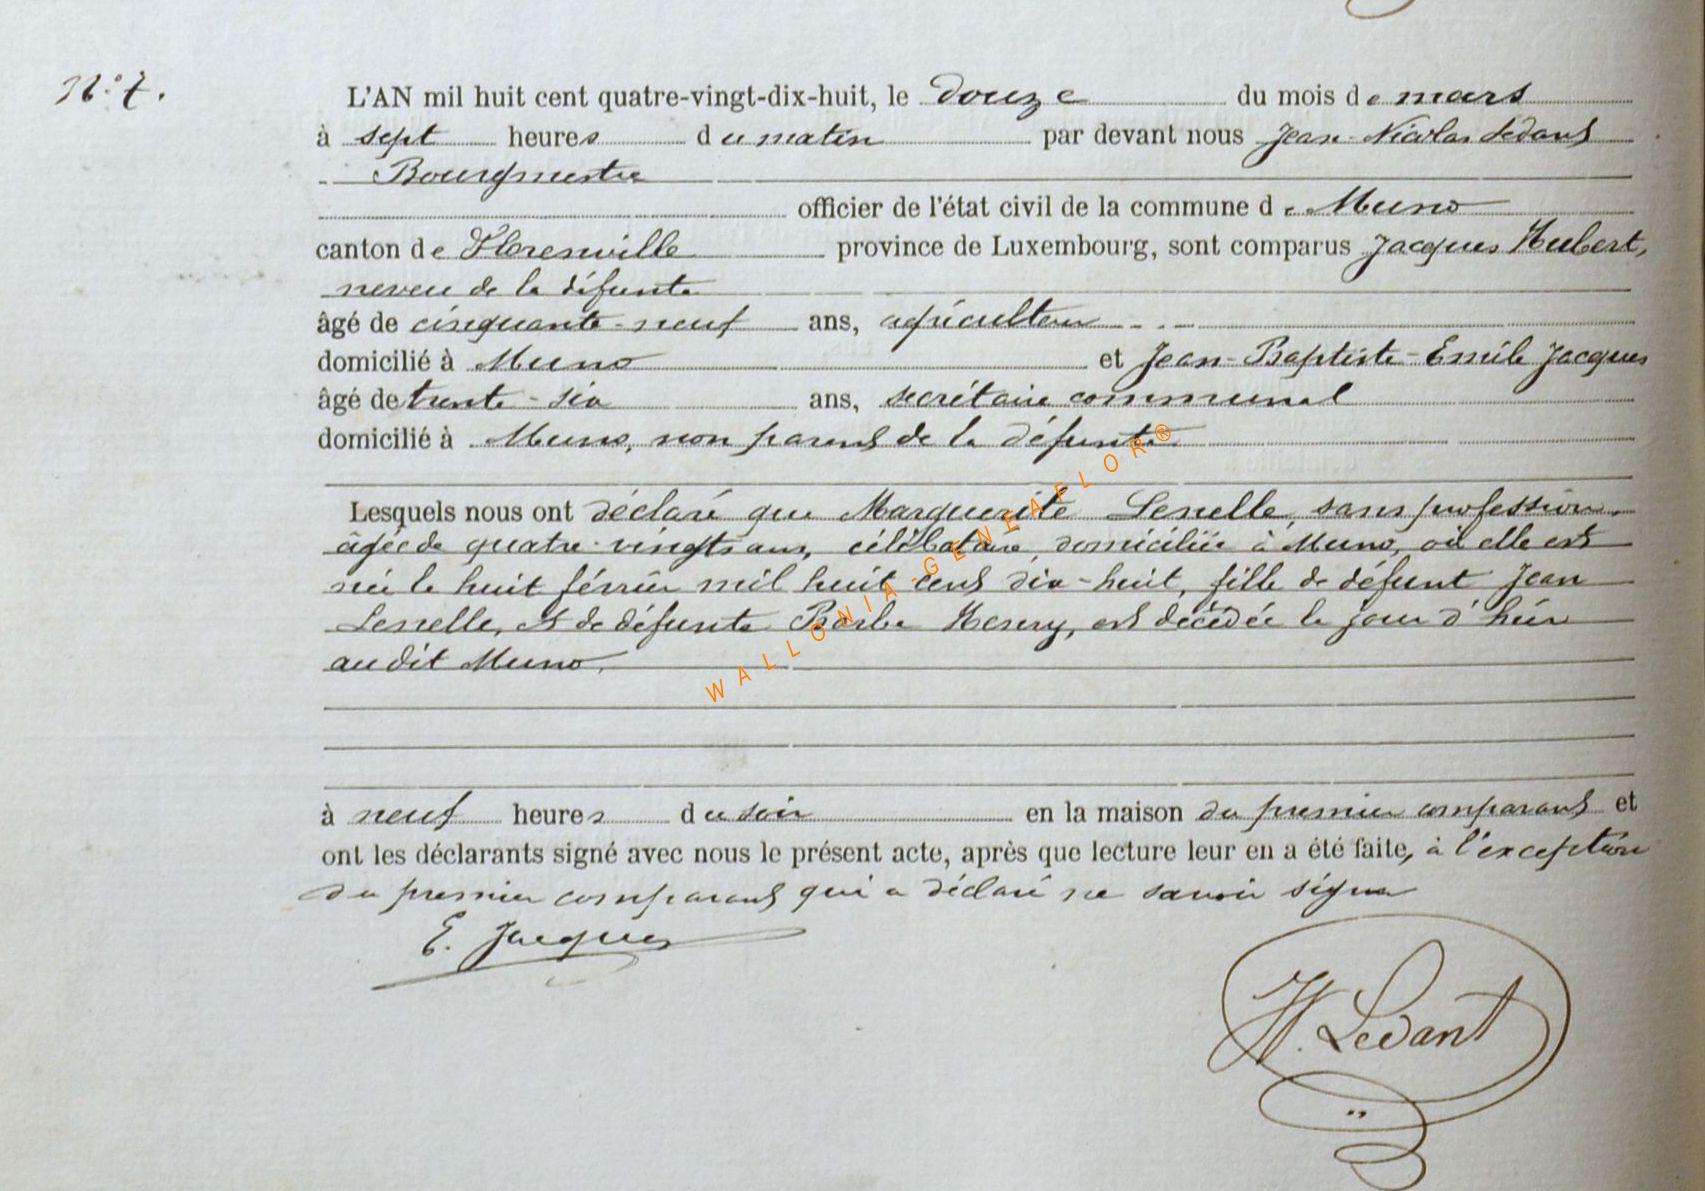 N° 7.
L'AN mil huit cent quatre-vingt-dix-huit, le douze du mois de mars
à sept heures du matin par devant nous Jean-Nicolas Ledant
Bourgmestre
officier de l'état civil de la commune de Muno
canton de Florenville province de Luxembourg, sont comparus Jacques Hubert,
neveu de la défunte
âgé de cinquante-neuf ans, agriculteur
domicilié à Muno et Jean-Baptiste-Emile Jacques
âgé de trente-six ans, secrétaire communal
domicilié à Muno, non parent de la défunte.
Lesquels nous ont déclaré que Marguerite Lenelle, sans profession,
âgée de quatre-vingts ans, célibataire, domiciliée à Muno, où elle est
née le huit février mil huit cent dix-huit, fille de défunt Jean
Lenelle, et de défunte Barbe Henry, est décédée le jour d'hier
au dit Muno.
à neuf heures du soir en la maison du premier comparant et
ont les déclarants signé avec nous le présent acte, après que lecture leur en a été faite, à l'exception
du premier comparant qui a déclaré ne savoir signer
E. Jacques
N. Ledant
WALLONIA-GENEAFLOR®